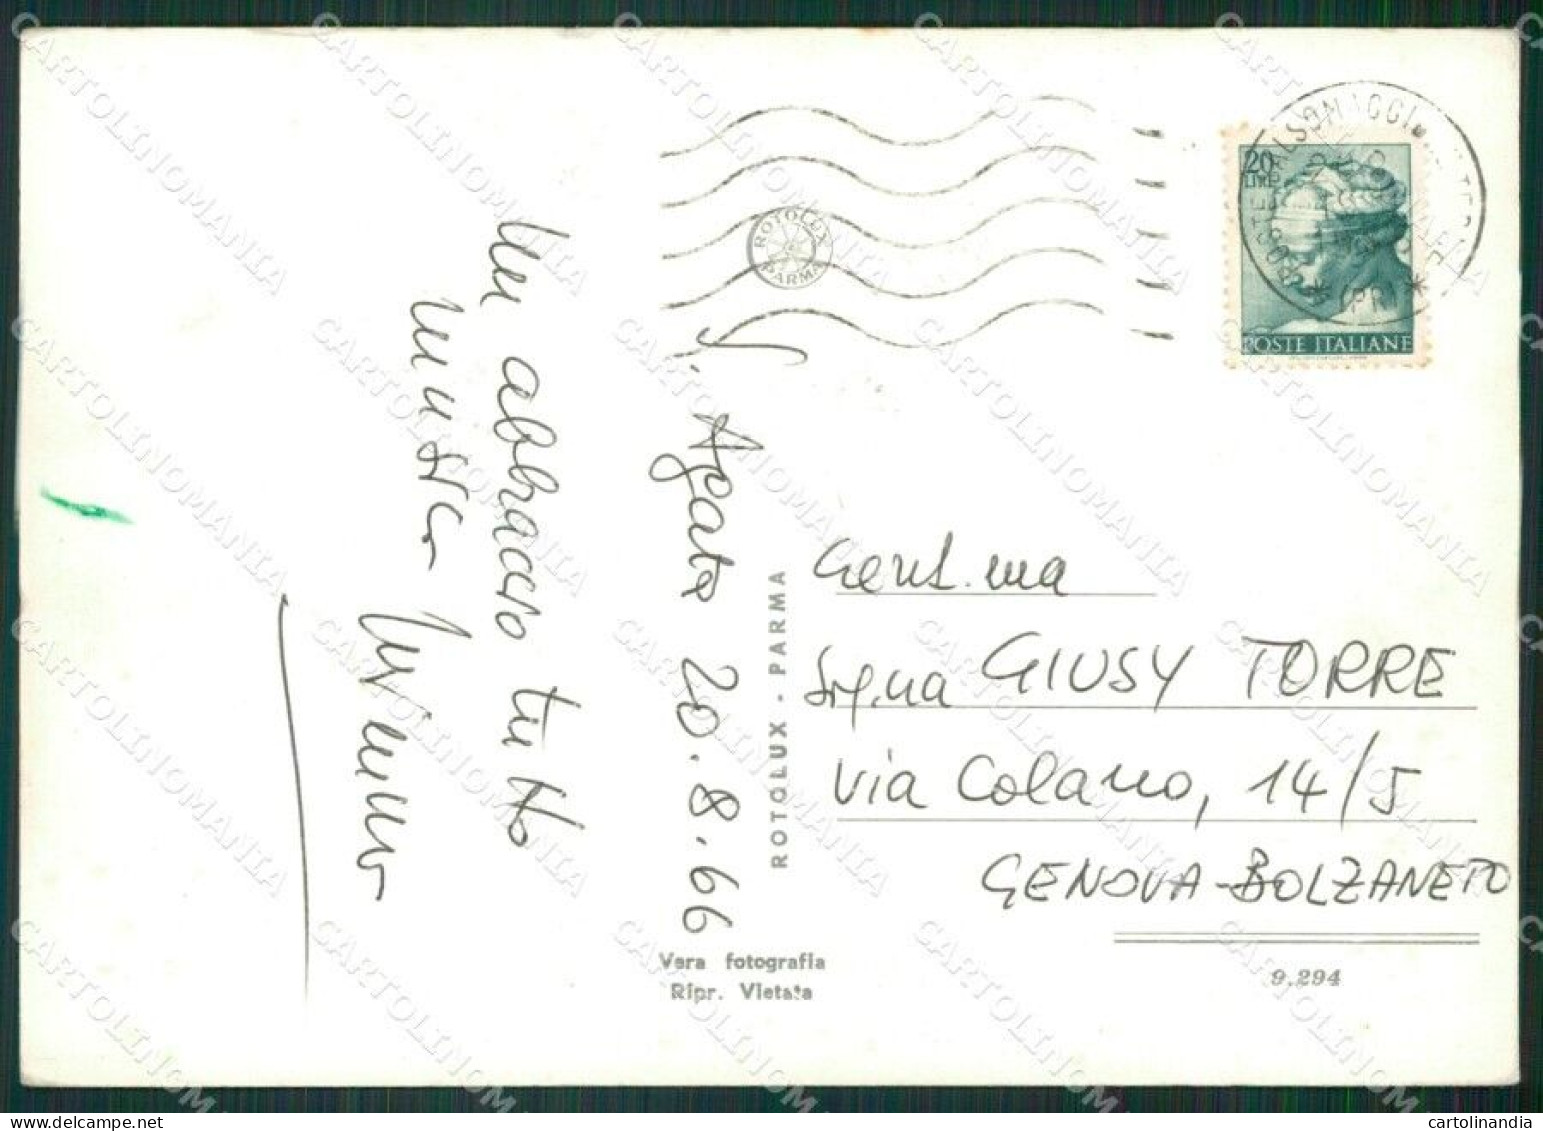 S. Agata 20.8.66
Un abbraccio tutto
ROTOLUX
PARMA
20
LIRE
POSTE ITALIANE
(PR)
ROTOLUX - PARMA
Gent.ma
Sig.na GIUSY TORRE
Via Colano, 14/5
GENOVA-BOLZANETO
Vera fotografia
Ripr. Vietata
9.294
CARTOLINOMANIA
cartolinandia